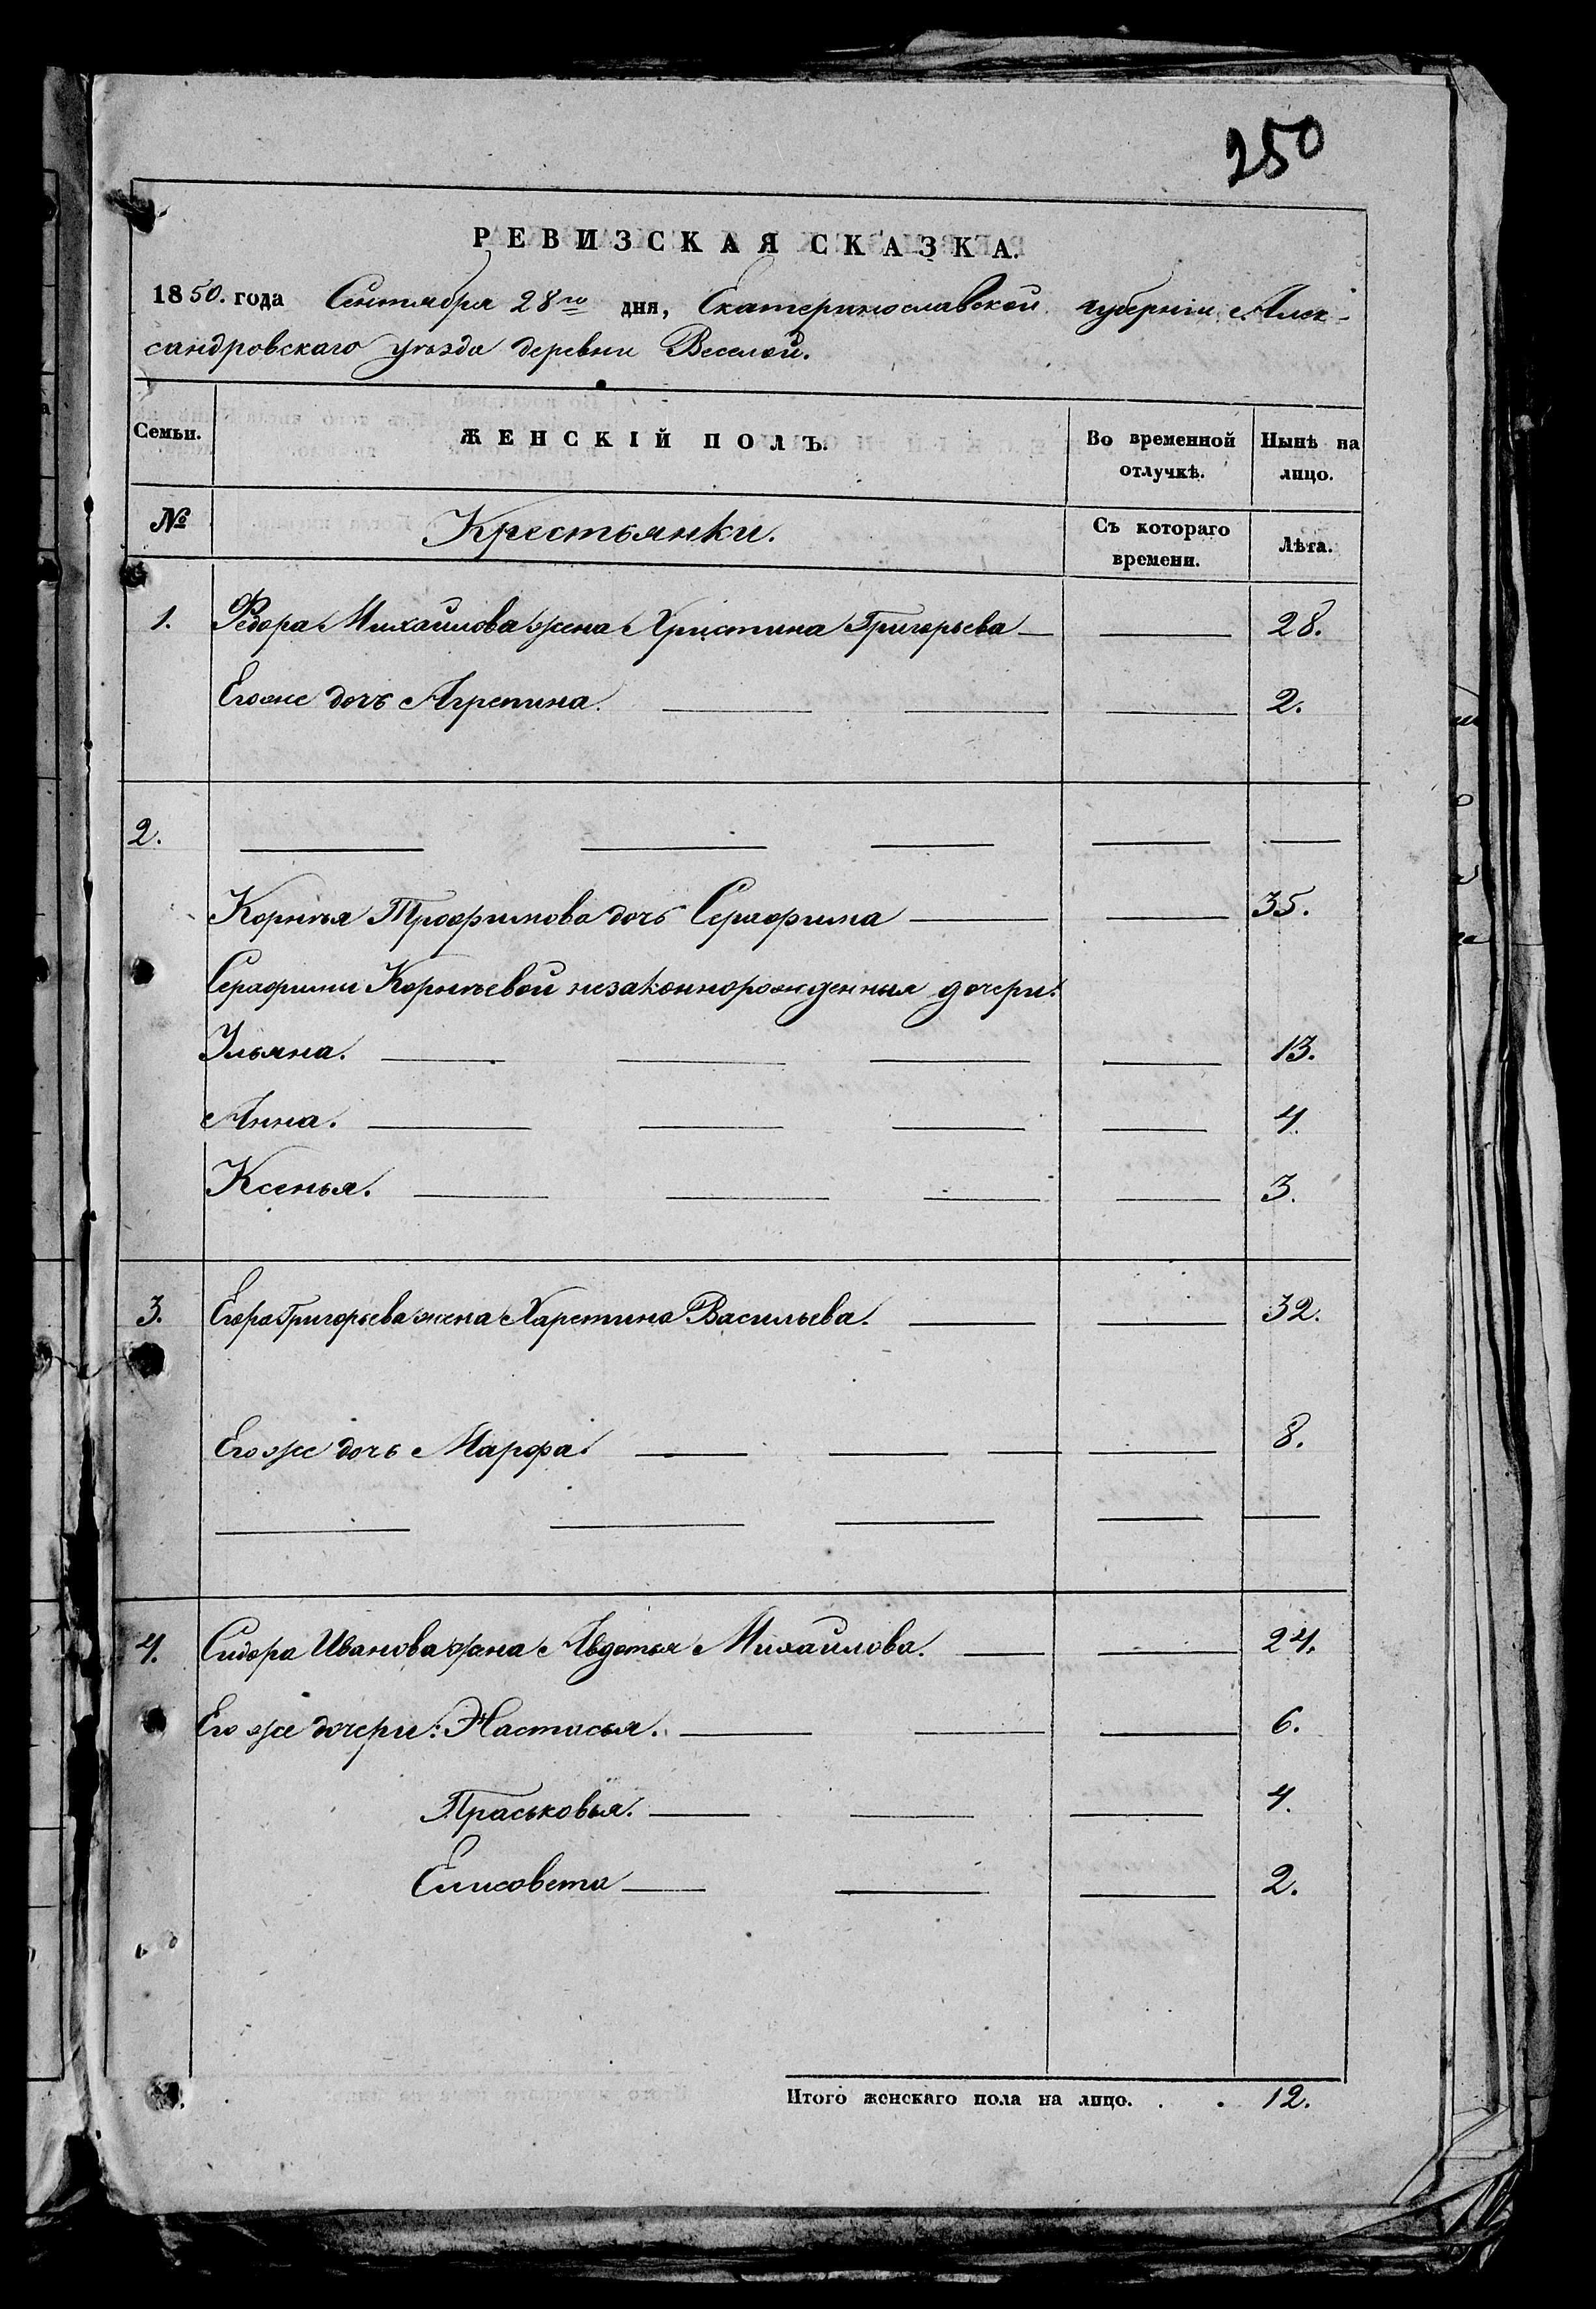 250
РЕВИЗСКАЯ СКАЗКА.
1850. года Сентября 28го дня, Екатеринославской губерніи Алек-
сандровскаго уѣзда деревни Веселой.
Семьи. ЖЕНСКІЙ ПОЛЪ. Во временной отлучкѣ. Нынѣ на лицо.
№ Крестьянки. Съ котораго времени. Лѣта.
1. Федора Михайлова жена Христина Григорьева 28.
Его же дочь Агрепина. 2.
2.
Корнѣя Трофимова дочь Серафима 35.
Серафими Корнѣевой незаконнорожденныя дочери:
Ульяна. 13.
Анна. 4.
Ксенья. 3.
3. Егора Григорьева жена Харетина Васильева. 32.
Его же дочь Марфа. 8.
4. Сидора Иванова жена Авдотья Михайлова. 24.
Его же дочери: Настасья. 6.
Праськовья. 4.
Елисовета 2.
Итого женскаго пола на лицо. . . 12.